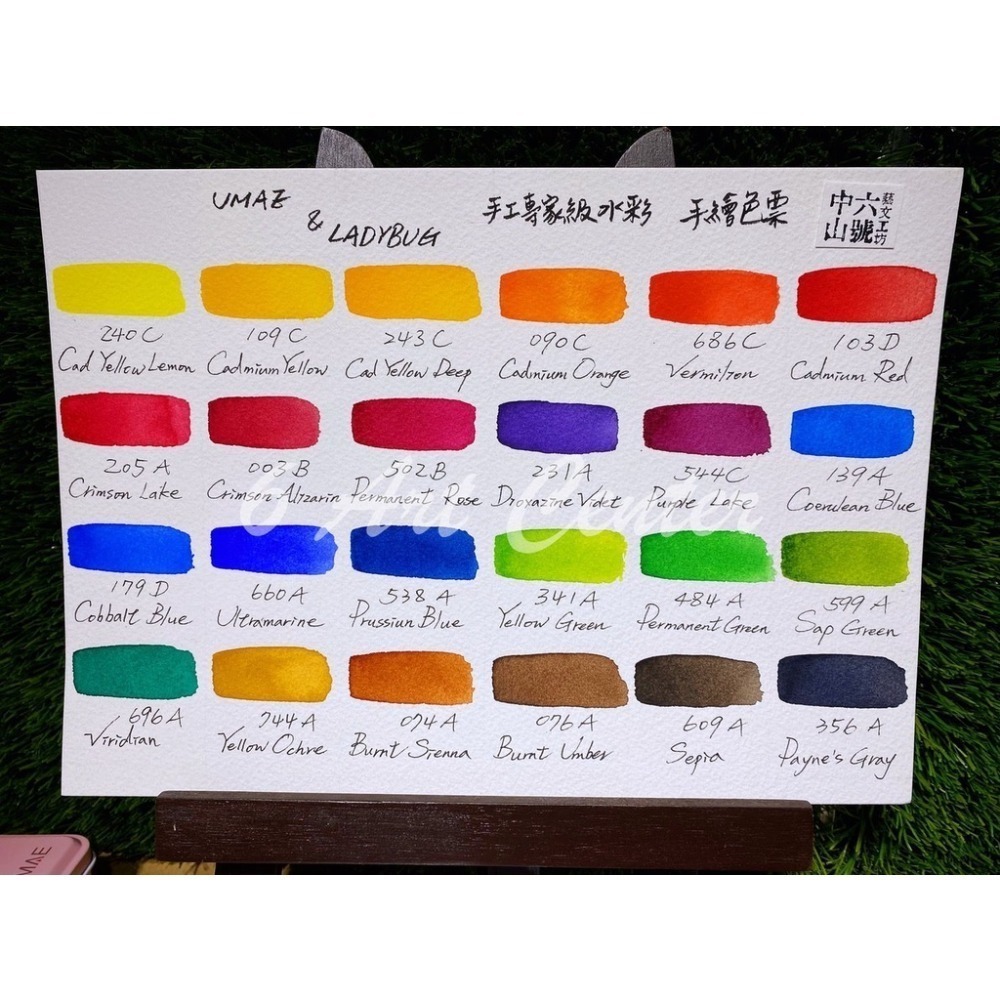 UMAE
& LADYBUG
手工專家級水彩 手繪色票
中山六號
藝文工坊
240C 109C 243C 090C 686C 103D
Cad Yellow Lemon Cadmium Yellow Cad Yellow Deep Cadmium Orange Vermilion Cadmium Red
205A 003B 502B 231A 544C 139A
Crimson Lake Crimson Alizarin Permanent Rose Dioxazine Violet Purple Lake Coerulean Blue
6 Art Center
179D 660A 538A 341A 484A 599A
Cobbalt Blue Ultramarine Prussiun Blue Yellow Green Permanent Green Sap Green
696A 744A 074A 076A 609A 356A
Viridian Yellow Ochre Burnt Sienna Burnt Umber Sepia Payne's Gray
MAE